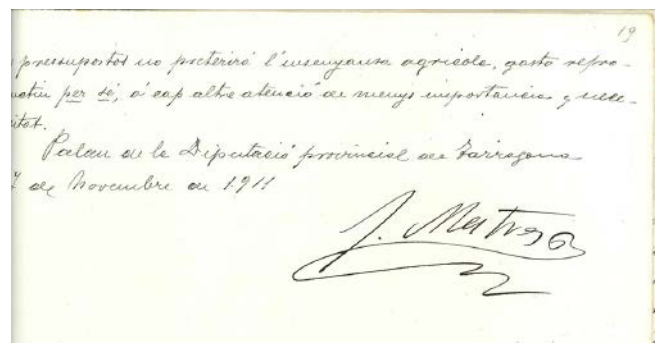 19
pressupostos no preterirá l'ensenyansa agricola, gasto repro-
ductiu per sé, á cap altre atenció de menys importancia y nece-
sitat.
Palau de la Diputació provincial de Tarragona
7 de Novembre de 1911
J. Mestres